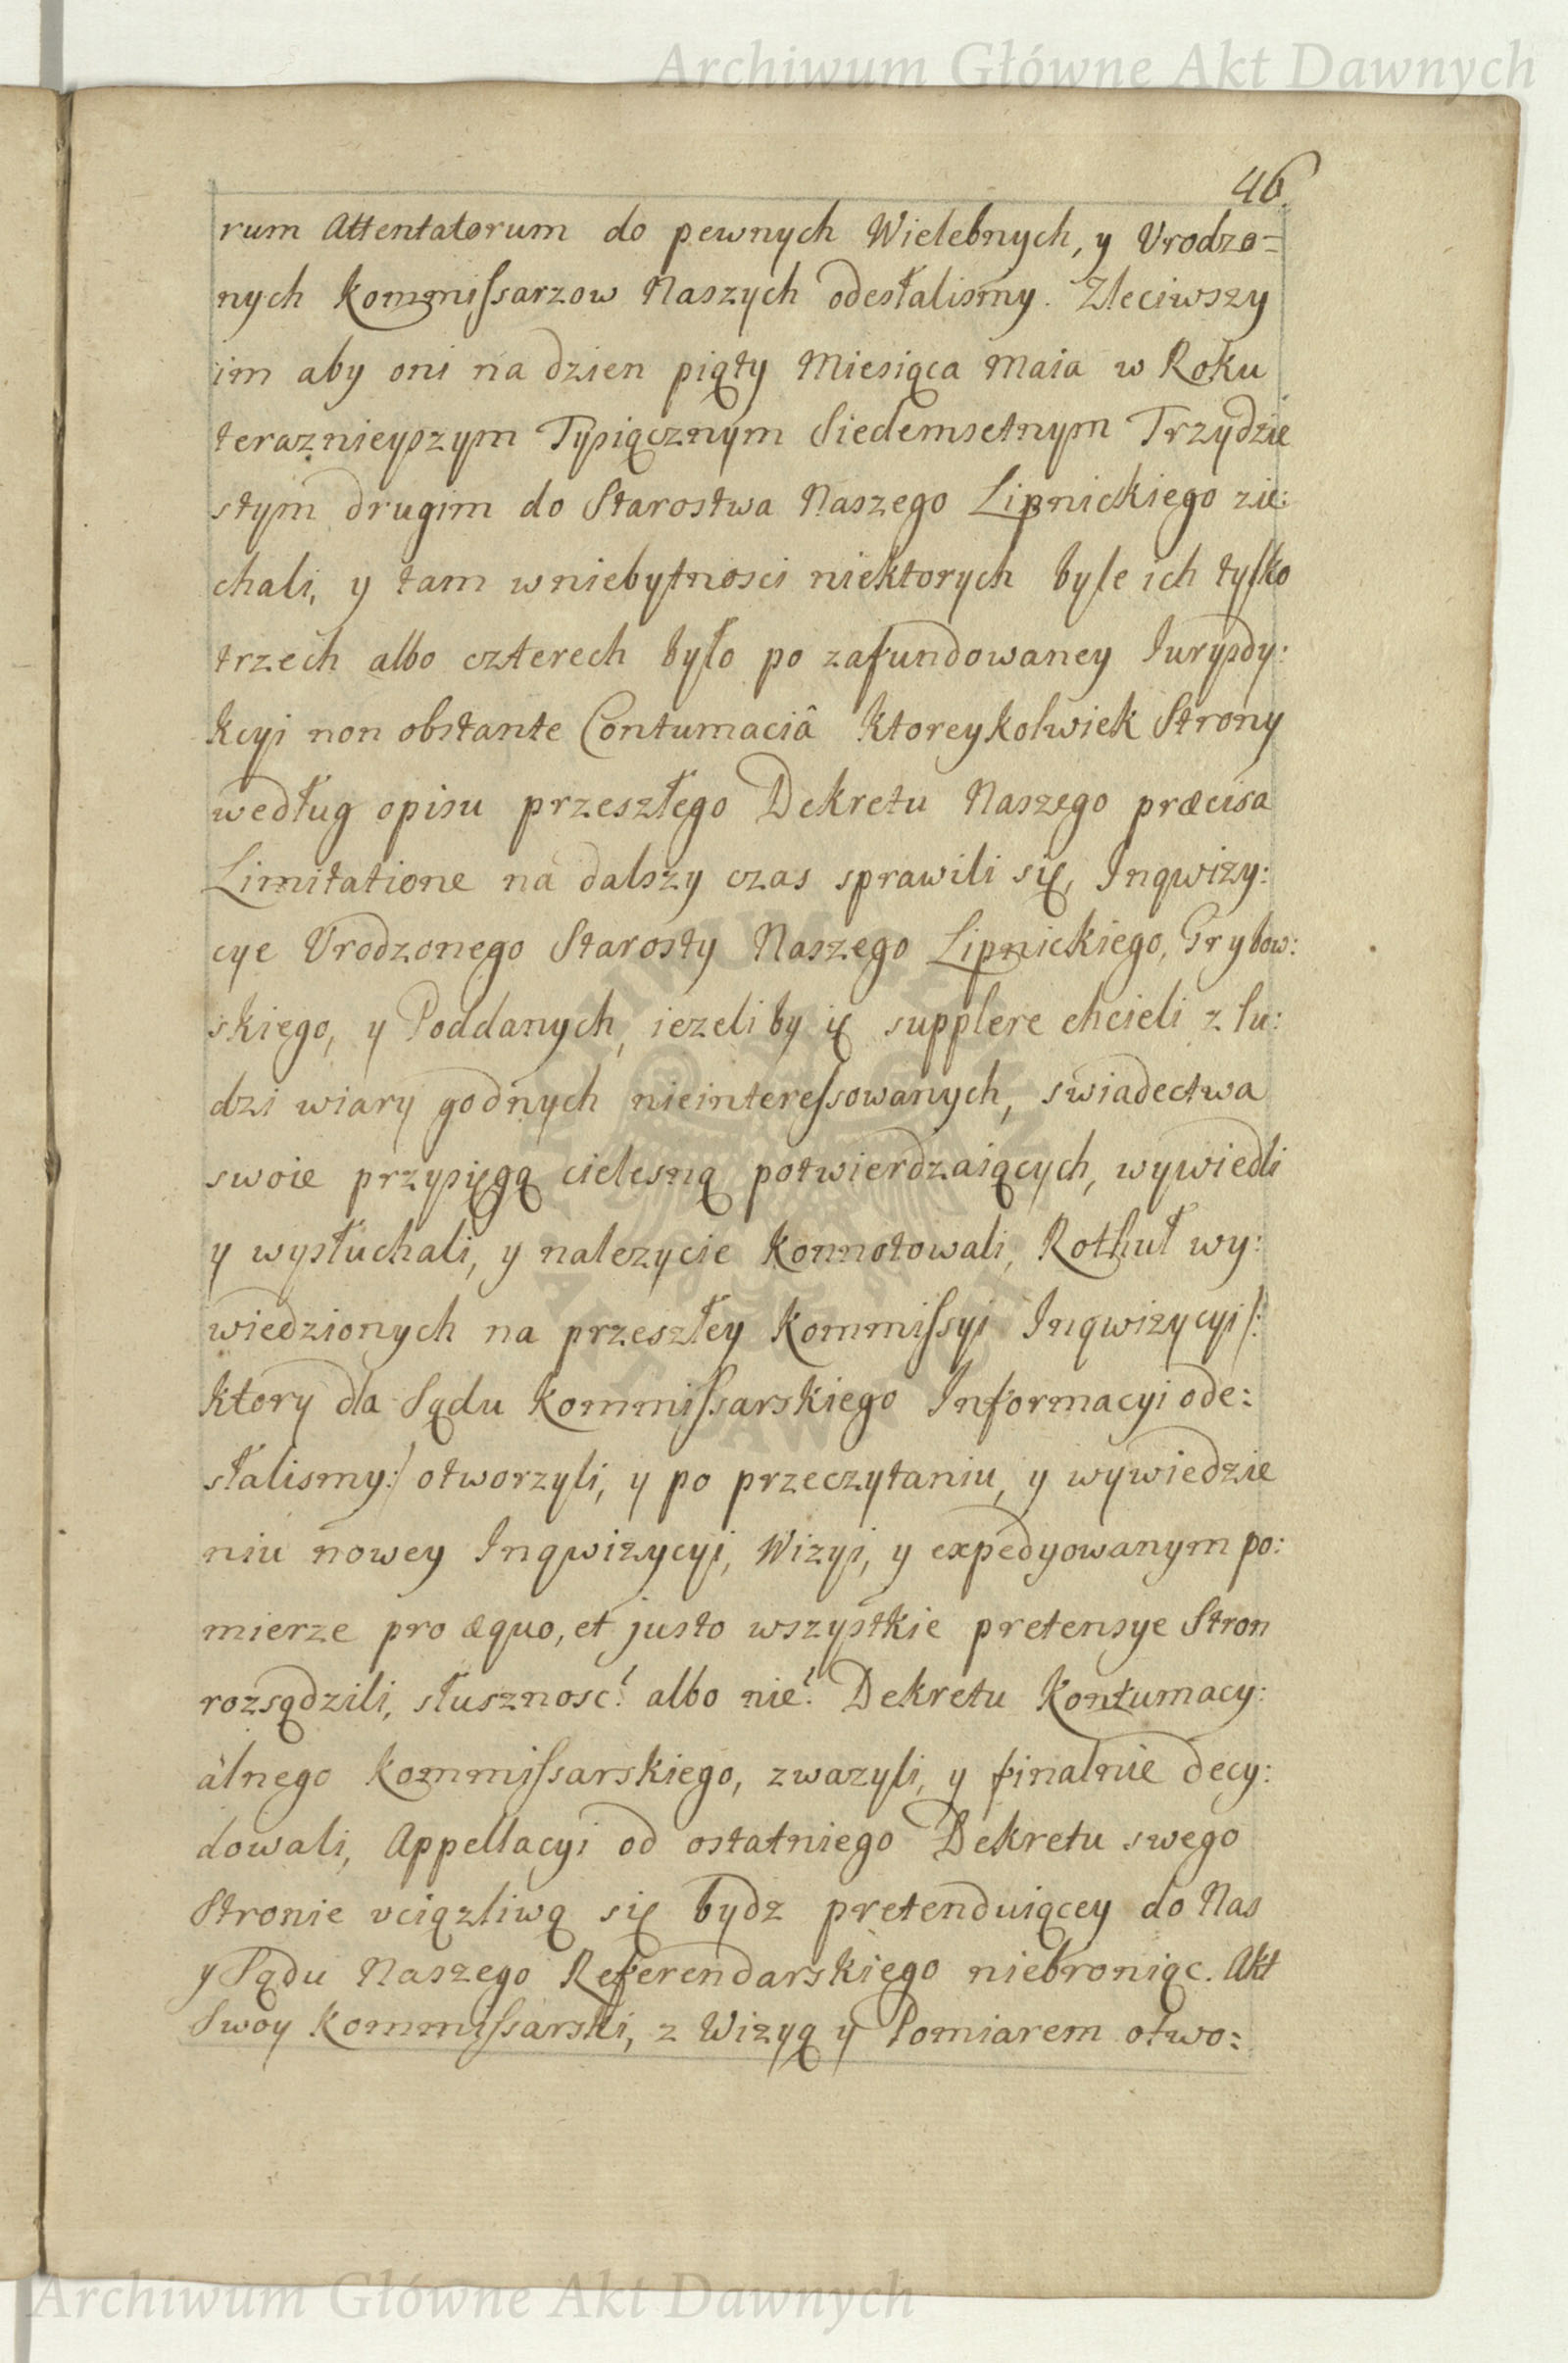 Archiwum Główne Akt Dawnych
46.
rum Attentatorum do pewnych Wielebnych, y Vrodzo=
nych Kommissarzow Naszych odesłalismy. Zleciwszy
im aby oni na dzien piąty Miesiąca Maia w Roku
teraznieyszym Tysiącznym Siedemsetnym Trzydzie
stym drugim do Starostwa Naszego Lipnickiego zie:
chali, y tam w niebytnosci niektorych byle ich tylko
trzech albo czterech było po zafundowaney Iurysdy:
kcyi non obstante Contumaciâ ktoreykolwiek Strony
według opisu przeszłego Dekretu Naszego præcisa
Limitatione na dalszy czas sprawili się, Inqwizy:
cye Vrodzonego Starosty Naszego Lipnickiego, Grybow:
skiego, y Poddanych, iezeliby ię supplere chcieli z lu:
dzi wiary godnych nieinteressowanych, swiadectwa
swoie przysięgą cielesną potwierdzaiących, wywiedli
y wysłuchali, y nalezycie konnotowali, Rothuł wy:
wiedzionych na przeszłey Kommissyi Inqwizycyi /:
ktory dla Sądu Kommissarskiego Informacyi ode:
słalismy:/ otworzyli, y po przeczytaniu, y wywiedzie
niu nowey Inqwizycyi, Wizyi, y expedyowanym po:
mierze pro æquo, et justo wszystkie pretensye Stron
rozsądzili, słusznosc? albo nie? Dekretu Kontumacy:
alnego Kommissarskiego, zwazyli, y finalnie decy:
dowali, Appellacyi od ostatniego Dekretu swego
Stronie vciązliwą się bydz pretenduiącey do Nas
y Sądu Naszego Referendarskiego niebroniąc. Akt
Swoy Kommissarski, z Wizyą y Pomiarem otwo:
Archiwum Główne Akt Dawnych